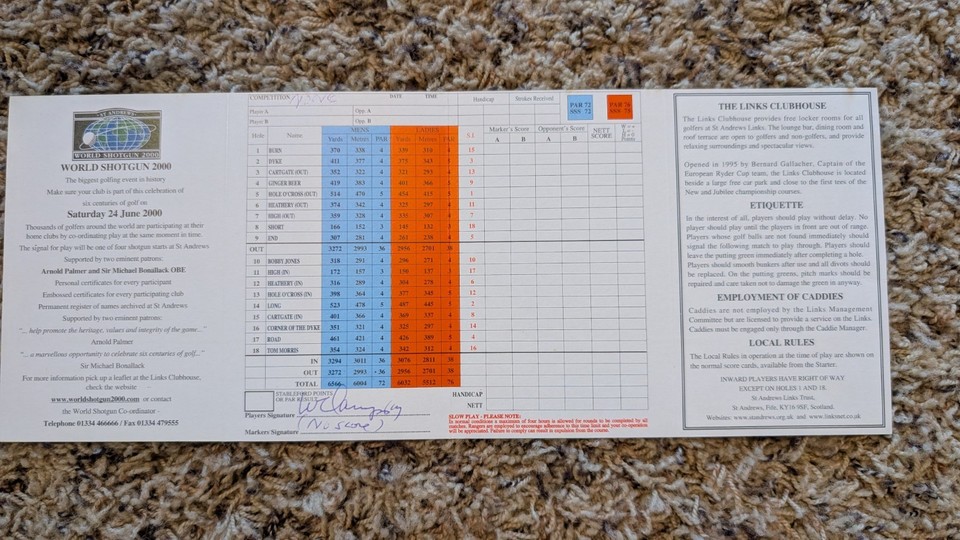 ST ANDREWS
WORLD SHOTGUN 2000
WORLD SHOTGUN 2000
The biggest golfing event in history
Make sure your club is part of this celebration of
six centuries of golf on
Saturday 24 June 2000
Thousands of golfers around the world are participating at their
home clubs by co-ordinating play at the same moment in time.
The signal for play will be one of four shotgun starts at St Andrews
Supported by two eminent patrons:
Arnold Palmer and Sir Michael Bonallack OBE
Personal certificates for every participant
Embossed certificates for every participating club
Permanent register of names archived at St Andrews
Supported by two eminent patrons:
"... help promote the heritage, values and integrity of the game..."
Arnold Palmer
"...a marvellous opportunity to celebrate six centuries of golf..."
Sir Michael Bonallack
For more information pick up a leaflet at the Links Clubhouse,
check the website -
www.worldshotgun2000.com or contact
the World Shotgun Co-ordinator -
Telephone 01334 466666 / Fax 01334 479555
COMPETITION DATE TIME Handicap Strokes Received
PAR 72 SSS 72 PAR 76
Player A Opp. A
Player B Opp. B
MENS LADIES Marker's Score Opponent's Score NETT SCORE Points
Hole Name Yards Metres PAR Yards Metres PAR S.I. A B A B
1 BURN 370 338 4 339 310 4 15
2 DYKE 411 377 4 375 343 3
3 CARTGATE (OUT) 352 322 4 321 293 13
4 GINGER BEER 419 383 4 401 366 5 9
5 HOLE O'CROSS (OUT) 514 470 5 454 415 5 1
6 HEATHERY (OUT) 374 342 4 325 297 4 11
7 HIGH (OUT) 359 328 4 335 307 4 7
8 SHORT 166 152 3 145 132
9 END 307 281 4 261 239 4 5
OUT 3272 2993 36 2956 2701 38
10 BOBBY JONES 318 291 4 296 271 4 10
11 HIGH (IN) 172 157 3 150 137 3 17
12 HEATHERY (IN) 316 289 4 304 278 4 6
13 HOLE O'CROSS (IN) 398 364 4 377 345 5 12
14 LONG 523 478 5 487 445 5 2
15 CARTGATE (IN) 401 366 4 369 337 4 8
16 CORNER OF THE DYKE 351 321 4 325 297 4 14
17 ROAD 461 421 4 426 389 5 4
18 TOM MORRIS 354 324 4 342 312 4 16
IN 3294 3011 36 3076 2811 38
OUT 3272 2993 36 2956 2701 38
TOTAL 6566 6004 72 6032 5512 76
STABLEFORD POINTS OR PAR RESULT
HANDICAP
NETT
Players Signature
Markers Signature (No Score)
SLOW PLAY - PLEASE NOTE:
In normal conditions a maximum of four hours is allowed for rounds to be completed by all
matches. Rangers are employed to encourage adherence to this time limit and your co-operation
will be appreciated. Failure to comply can result in expulsion from the course.
THE LINKS CLUBHOUSE
The Links Clubhouse provides free locker rooms for all
golfers at St Andrews Links. The lounge bar, dining room and
roof terrace are open to golfers and non-golfers, and provide
relaxing surroundings and spectacular views.
Opened in 1995 by Bernard Gallacher, Captain of the
European Ryder Cup team, the Links Clubhouse is located
beside a large free car park and close to the first tees of the
New and Jubilee championship courses.
ETIQUETTE
In the interest of all, players should play without delay. No
player should play until the players in front are out of range.
Players whose golf balls are not found immediately should
signal the following match to play through. Players should
leave the putting green immediately after completing a hole.
Players should smooth bunkers after use and all divots should
be replaced. On the putting greens, pitch marks should be
repaired and care taken not to damage the green in anyway.
EMPLOYMENT OF CADDIES
Caddies are not employed by the Links Management
Committee but are licensed to provide a service on the Links.
Caddies must be engaged only through the Caddie Manager.
LOCAL RULES
The Local Rules in operation at the time of play are shown on
the normal score cards, available from the Starter.
INWARD PLAYERS HAVE RIGHT OF WAY
EXCEPT ON HOLES 1 AND 18.
St Andrews Links Trust,
St Andrews, Fife, KY16 9SF, Scotland.
Websites: www.standrews.org.uk and www.linksnet.co.uk